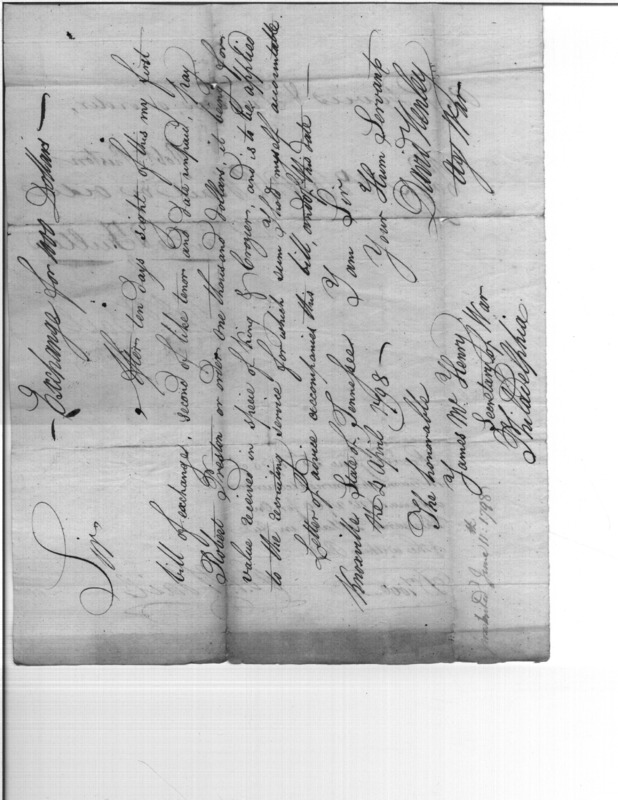 Exchange for 1000 Dollars
Sir
After ten days sight of this my first
bill of exchange, second of like tenor and date unpaid, pay
Robert Preston or order one thousand dollars, it being for
value received in specie of King & Crozier, and is to be applied
to the recruiting service for which sum I hold myself accountable.
Letter of advice accompanies this bill, under this date
Knoxville State of Tennessee I am Sir
the 4 April 1798 Your Hum Servant
The honorable David Henley
James McHenry Ag. War
Secretary of War
Philadelphia
June 11th 1798